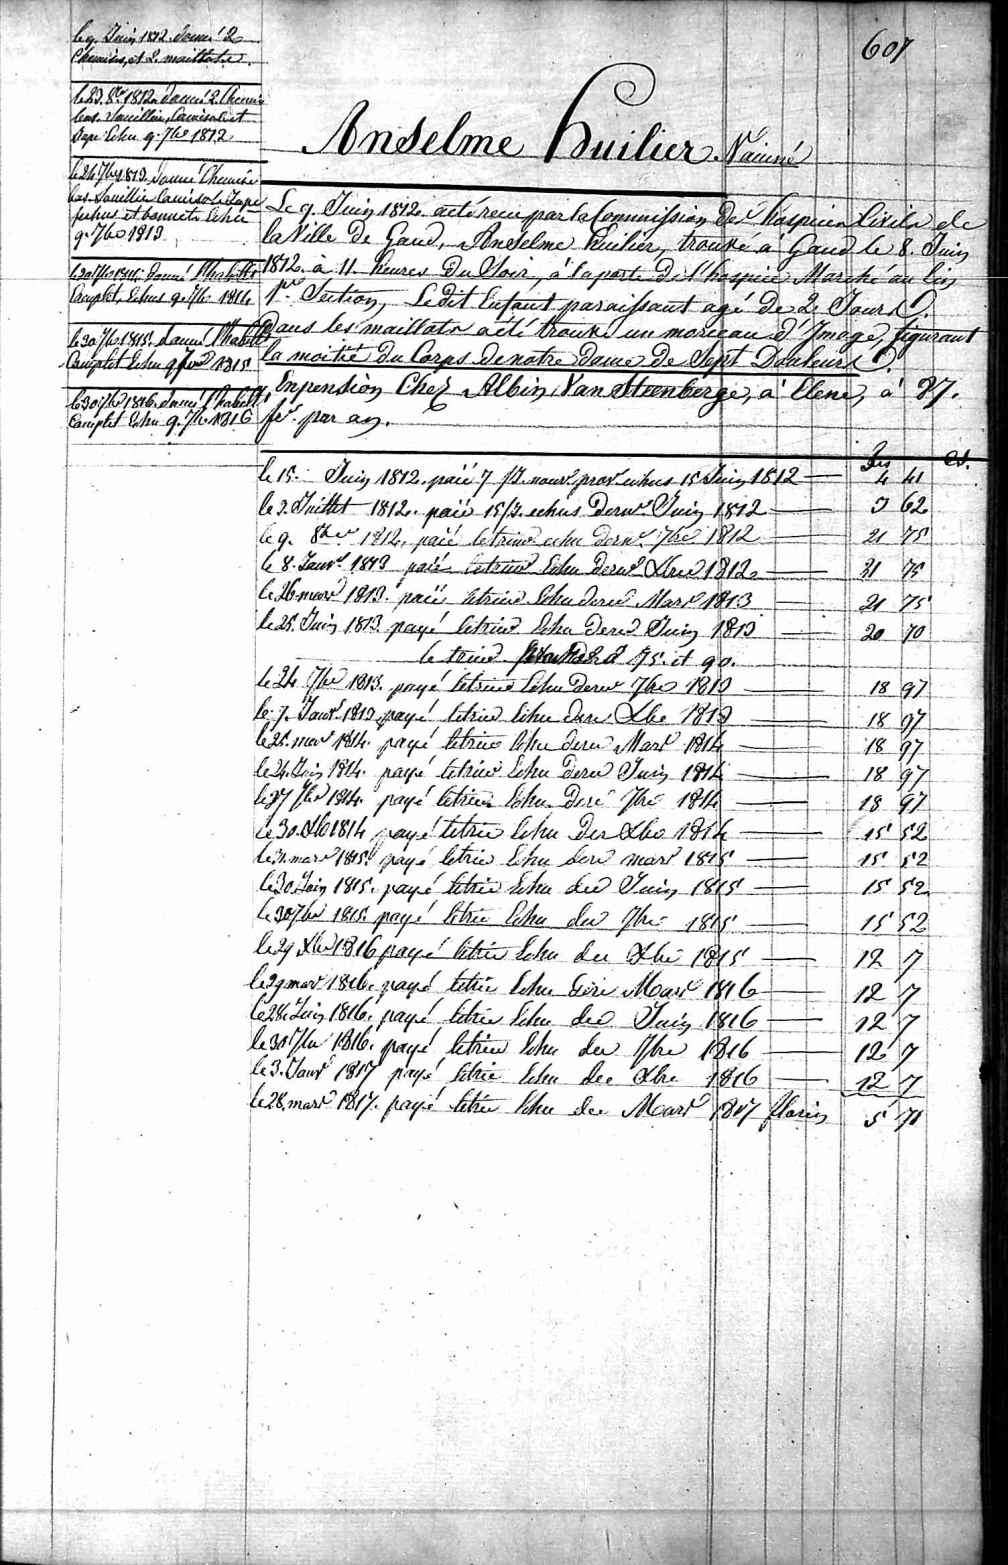 607
le 9. Juin 1812. donné 2
Chemises, et 2. maillots
le 23. 8re 1812 donné 2. Chemise
bas. Souillon, Camisole et
Jupe Echu 9. 7bre 1812
le 24 7bre 1813. donné Chemise
bas. Souillon Camisole Jupe
fichus et bonnets Echu
9. 7bre 1813
le 30 7bre 1814. donné l'habillt
Complet, Echus 9. 7bre 1814
le 30 7bre 1815. donné l'habillt
Complet Echu 9 7bre 1815
le 30 7bre 1816. donné l'habillt
Complet Echu 9. 7bre 1816
Anselme Huilier Vaciné
Le 9. Juin 1812. a été recu par la Commission des hospices Civils de
la Ville de Gand, Anselme Huilier, trouvé a Gand le 8. Juin
1812. à 11. heures du Soir, à la porte de l'hospice Marché au lin
1re Section, Ledit Enfant paraissant agé de 2. Jours.
Dans les maillots a été trouvé un morceau d'Ymage, figurant
la moitié du Corps de notre dame de Sept Douleurs.
En pension Chez Albin Van Steenberge, à Elene, à 87.
fr. par an.
frs cs.
le 15. Juin 1812. paié 7 Js. nour. prov. echus 15 Juin 1812 — 4 41
le 3. Juillet 1812. paié 15 Js. echus dernr Juin 1812 — 3 62
le 9. 8bre 1812. paié le trim. echu dernr 7bre 1812 — 21 75
le 8. Janvr 1813 paié le trim. Echu dernr Xbre 1812 — 21 75
le 26 mars 1813. paié le trim. Echu dernr Mars 1813 — 21 75
le 25. Juin 1813. payé le trim. Echu dernr Juin 1813 — 20 70
le trim. à 75. et 90.
le 24. 7bre 1813. payé le trim. Echu dernr 7bre 1813 — 18 97
le 7. Janvr 1813 payé le trim. Echu dernr Xbre 1813 — 18 97
le 25. mars 1814. payé le trim. Echu dernr Mars 1814 — 18 97
le 24. Juin 1814. payé le trim. Echu dernr Juin 1814 — 18 97
le 27 7bre 1814. payé le trim. Echu dernr 7bre 1814 — 18 97
le 30. Xbre 1814 payé le trim. Echu der Xbre 1814 — 15 52
le 31. mars 1815. payé le trim. Echu der mars 1815 — 15 52
le 30. Juin 1815. payé le trim. Echu der Juin 1815 — 15 52
le 30 7bre 1815. payé le trim. Echu der 7bre 1815 — 15 52
le 29 Xbre 1816 payé le trim. Echu der Xbre 1815 — 12 7
le 29 mars 1816. payé le trim. Echu der Mars 1816 — 12 7
le 28. Juin 1816. payé le trim. Echu der Juin 1816 — 12 7
le 30 7bre 1816. payé le trim. Echu der 7bre 1816 — 12 7
le 3. Janvr 1817 payé le trim. Echu der Xbre 1816 — 12 7
le 28. mars 1817. payé le trim. Echu der Mars 1817 florins 5 70